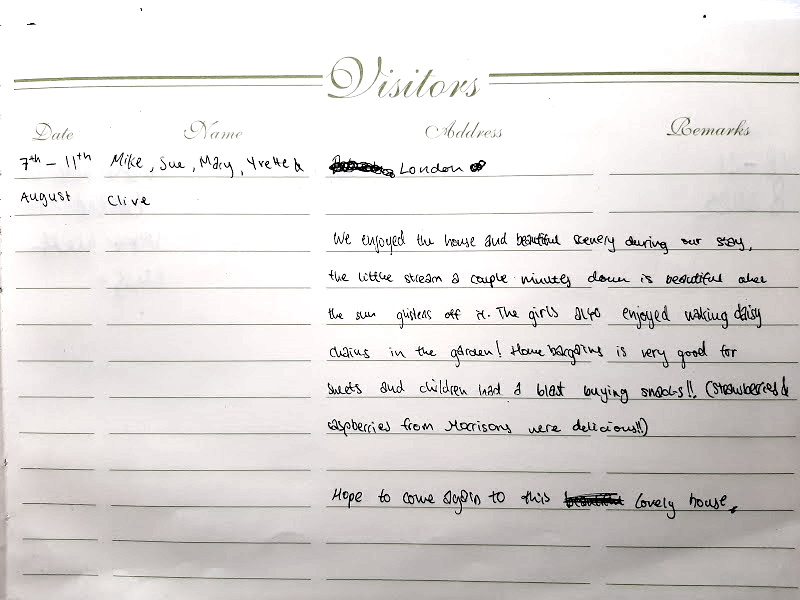 Visitors
Date Name Address Remarks
7th - 11th Mike, Sue, Mary, Yvette & London
August Clive
We enjoyed the house and beautiful scenery during our stay,
the little stream a couple minutes down is beautiful when
the sun glistens off it. The girls also enjoyed making daisy
chains in the garden! Home bargains is very good for
sweets and children had a blast buying snacks!! (strawberries &
raspberries from Morrisons were delicious!!)
Hope to come again to this lovely house.